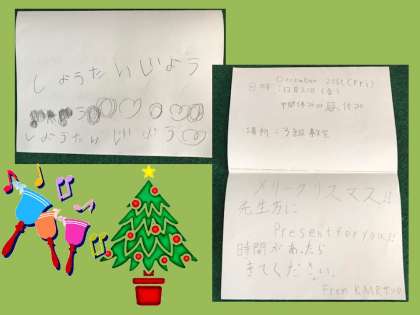 しょうたいじょう
しょうたいじょう
December 21st(Fri)
日時:12月21日(金)
中間休み
場所:
メリークリスマス!!
先生方に
Present for you!!
時間があったら
きてください。
From